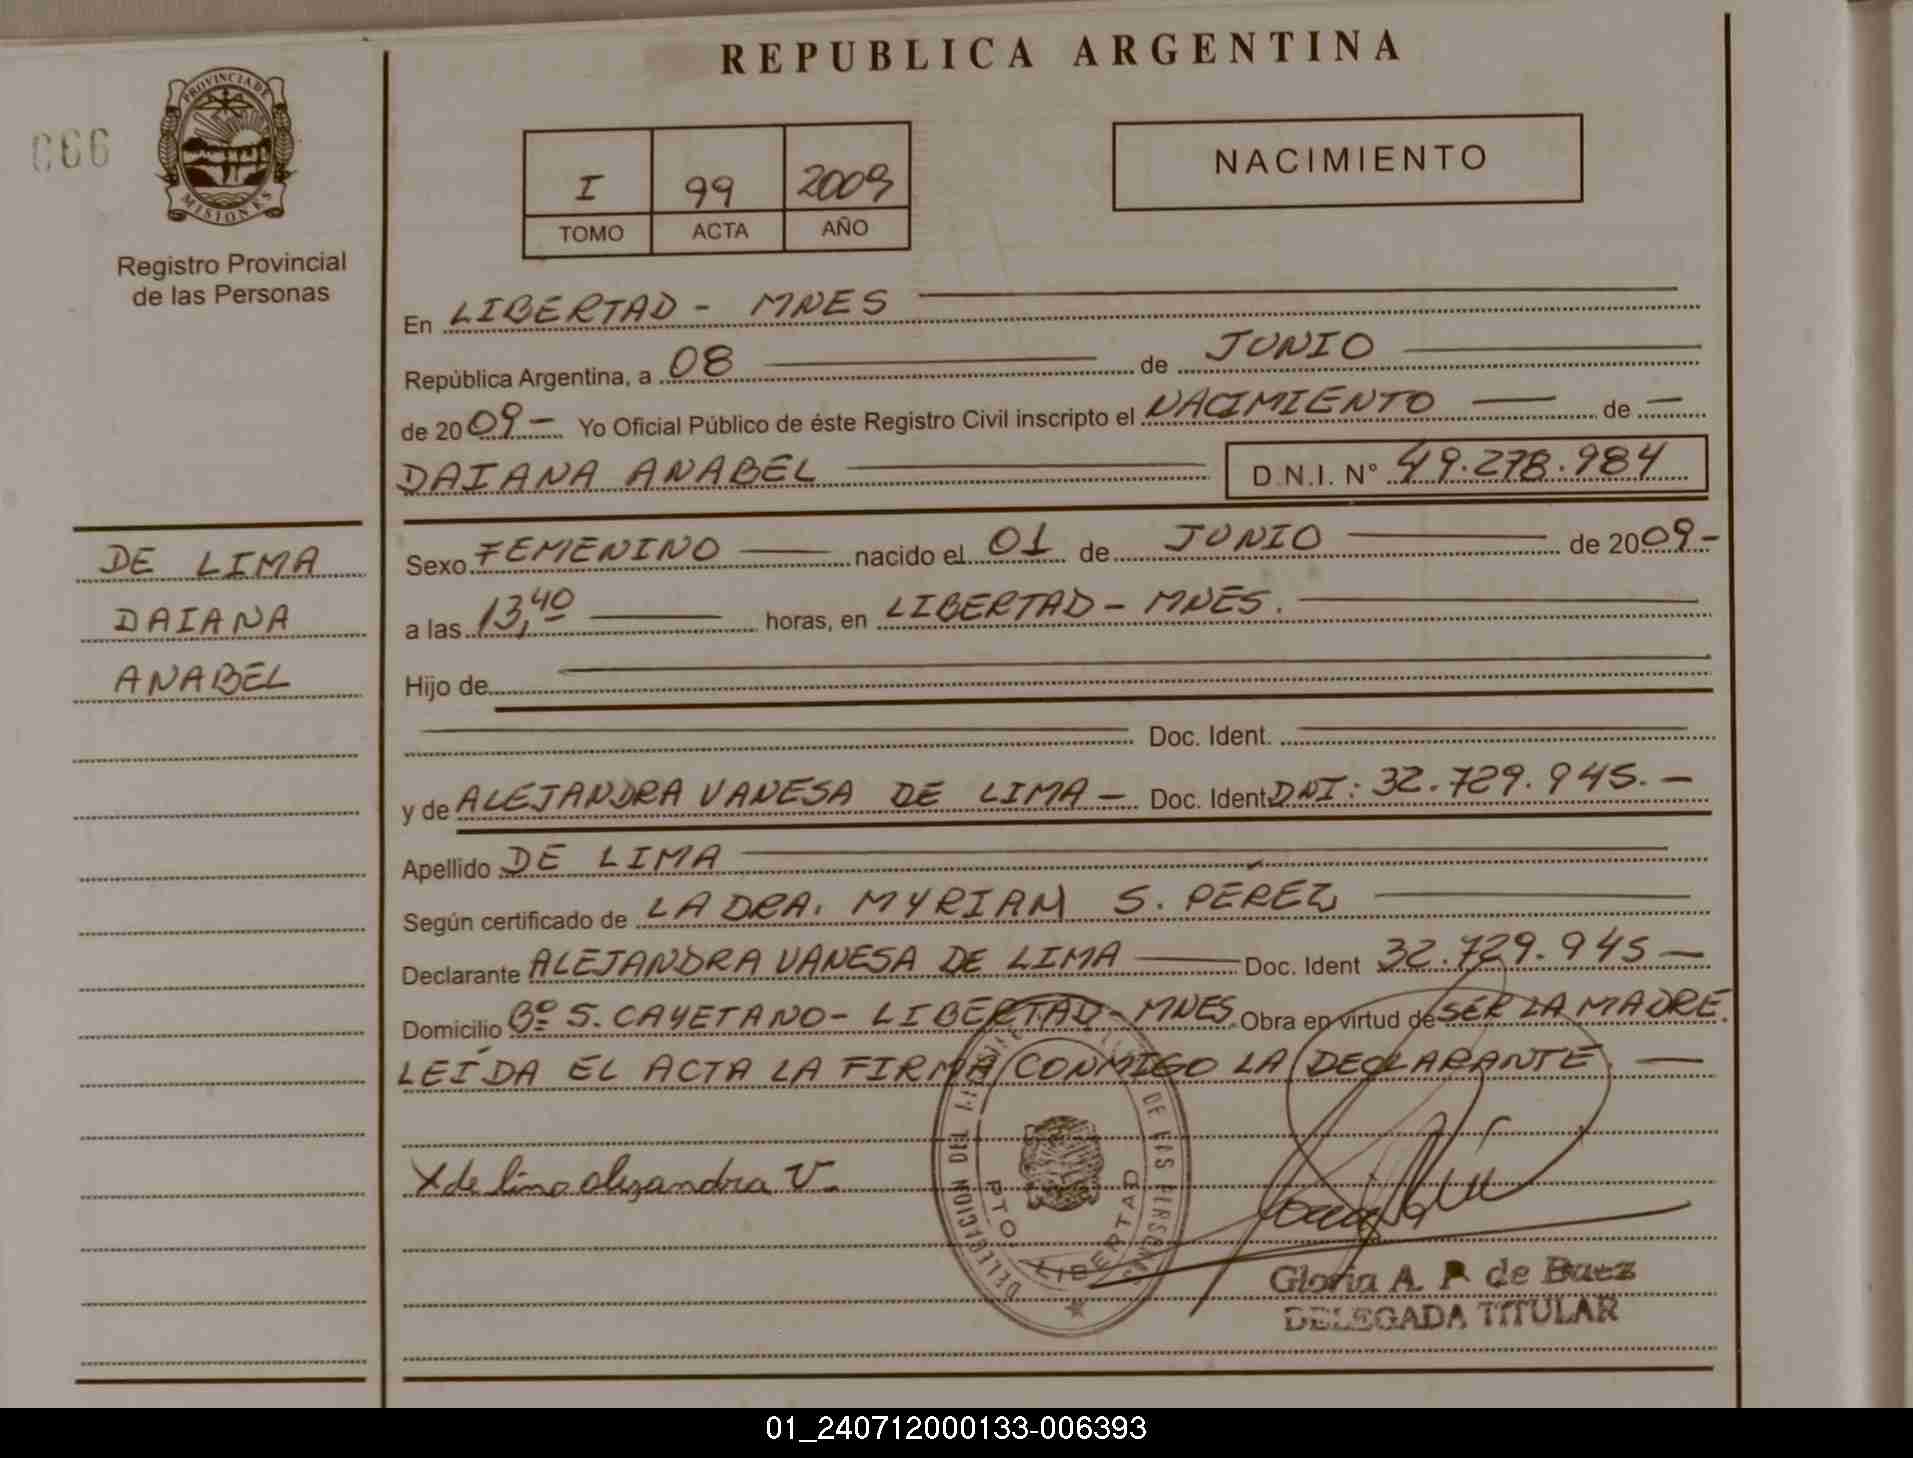 REPUBLICA ARGENTINA
066
PROVINCIA DE
MISIONES
Registro Provincial
de las Personas
I 99 2009
TOMO ACTA AÑO
NACIMIENTO
En LIBERTAD - MNES
República Argentina, a 08 de JUNIO
de 2009 - Yo Oficial Público de éste Registro Civil inscripto el NACIMIENTO de
DAIANA ANABEL D.N.I. N° 49.278.984
DE LIMA
DAIANA
ANABEL
Sexo FEMENINO nacido el 01 de JUNIO de 2009 -
a las 13,40 horas, en LIBERTAD - MNES.
Hijo de
Doc. Ident.
y de ALEJANDRA VANESA DE LIMA - Doc. Ident DNI: 32.729.945. -
Apellido DE LIMA
Según certificado de LA DRA. MYRIAN S. PÉREZ
Declarante ALEJANDRA VANESA DE LIMA Doc. Ident 32.729.945 -
Domicilio Bº S. CAYETANO - LIBERTAD - MNES. Obra en virtud de SER LA MADRE.
LEÍDA EL ACTA LA FIRMA CONMIGO LA DECLARANTE. -
X de lima alejandra V.
DELEGACION DEL DE LAS PERSONAS
PTO. LIBERTAD
Gloria A. P. de Baez
DELEGADA TITULAR
01_240712000133-006393